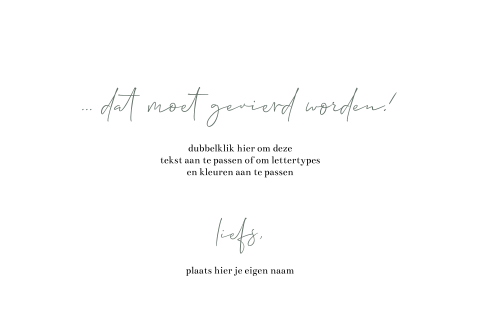 ... dat moet gevierd worden!
dubbelklik hier om deze
tekst aan te passen of om lettertypes
en kleuren aan te passen
liefs,
plaats hier je eigen naam